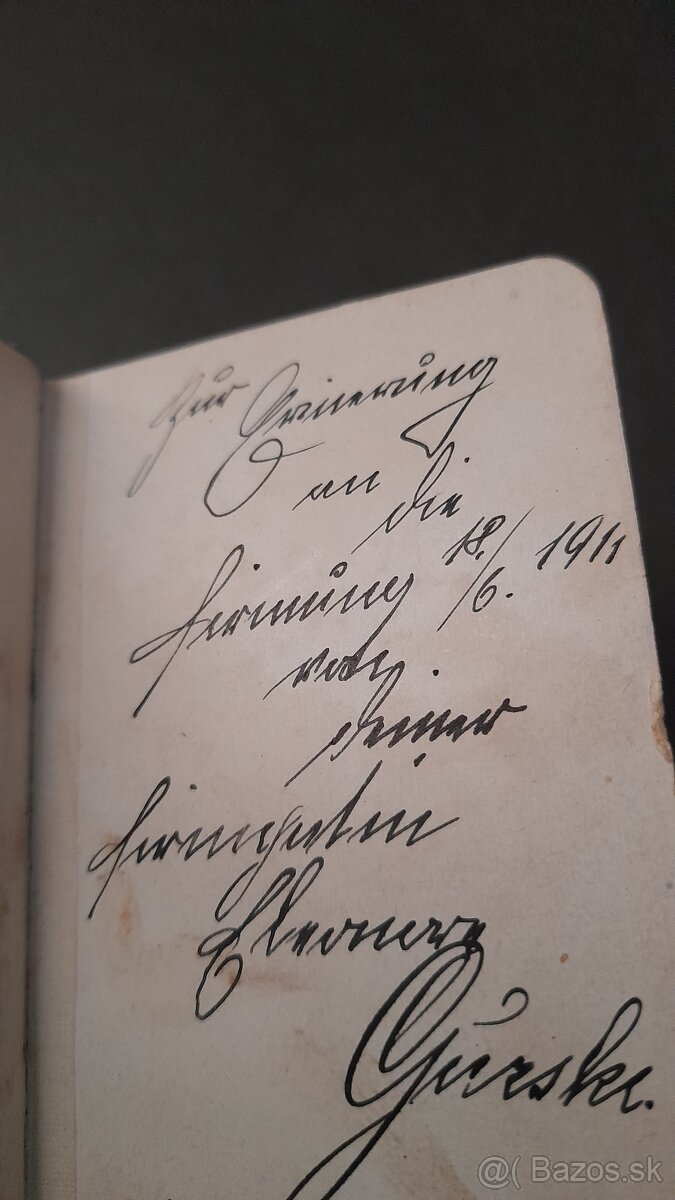 Zur Erinerung
an die
Firmung 18./6. 1911
von
deiner
Firmpatin
Eleonore
Gurski.
@( Bazos.sk